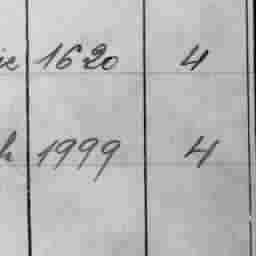 1620 4
1999 4